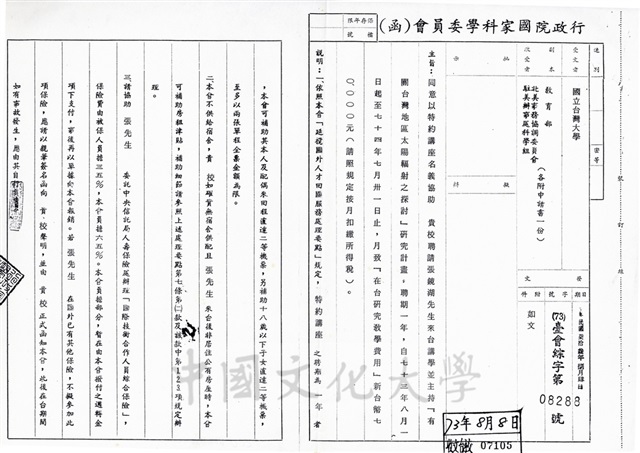 行政院國家科學委員會(函)
保存年限
檔號
速別
密等
受文者
國立台灣大學
副本收受者
教育部
駐美事務協調委員會
駐美辦事處科學組
(各附申請書一份)
批示
擬辦
發文
日期
字號
附件
(73)臺會綜字第08288號
如文
主旨:同意以特約講座名義協助 貴校聘請張鏡湖先生來台講學並主持「有
關台灣地區太陽輻射之探討」研究計畫,聘期一年,自七十三年八月一
日起至七十四年七月卅一日止,月致「在台研究教學費用」新台幣七
0、000元(請照規定按月扣繳所得稅)。
說明:一、依照本會「延攬國外人才回國服務處理要點」規定, 特約講座之聘期為一年者
,本會可補助其本人及配偶來回程直達二等機票,另補助十八歲以下子女直達二等機票,
至多以兩張單程全票金額為限。
二、本會不供給宿舍,貴 校如確實無宿舍供配且 張先生 來台後非居住公有房屋時,本會
可補助房租津貼,補助細節請參照上述處理要點第七條第㈡款及該款中第1 2 3項規定辦
理。
三、請協助 張先生 委託中央信託局人壽保險處辦理「國際技術合作人員綜合保險」,
保險費由被保人員擔三五%,本會負擔六五%。本會負擔部分,暫在由本會撥付之週轉金
項下支付,事後再以單據向本會報銷。若 張先生 在國外已有其他保險,不擬參加此
項保險,應請以親筆簽名函向 貴 校聲明,並由 貴 校 正式函知本會,此後在台期間
如有事故發生,應由其自
73年8月8日
收繳 07105
中國文化大學